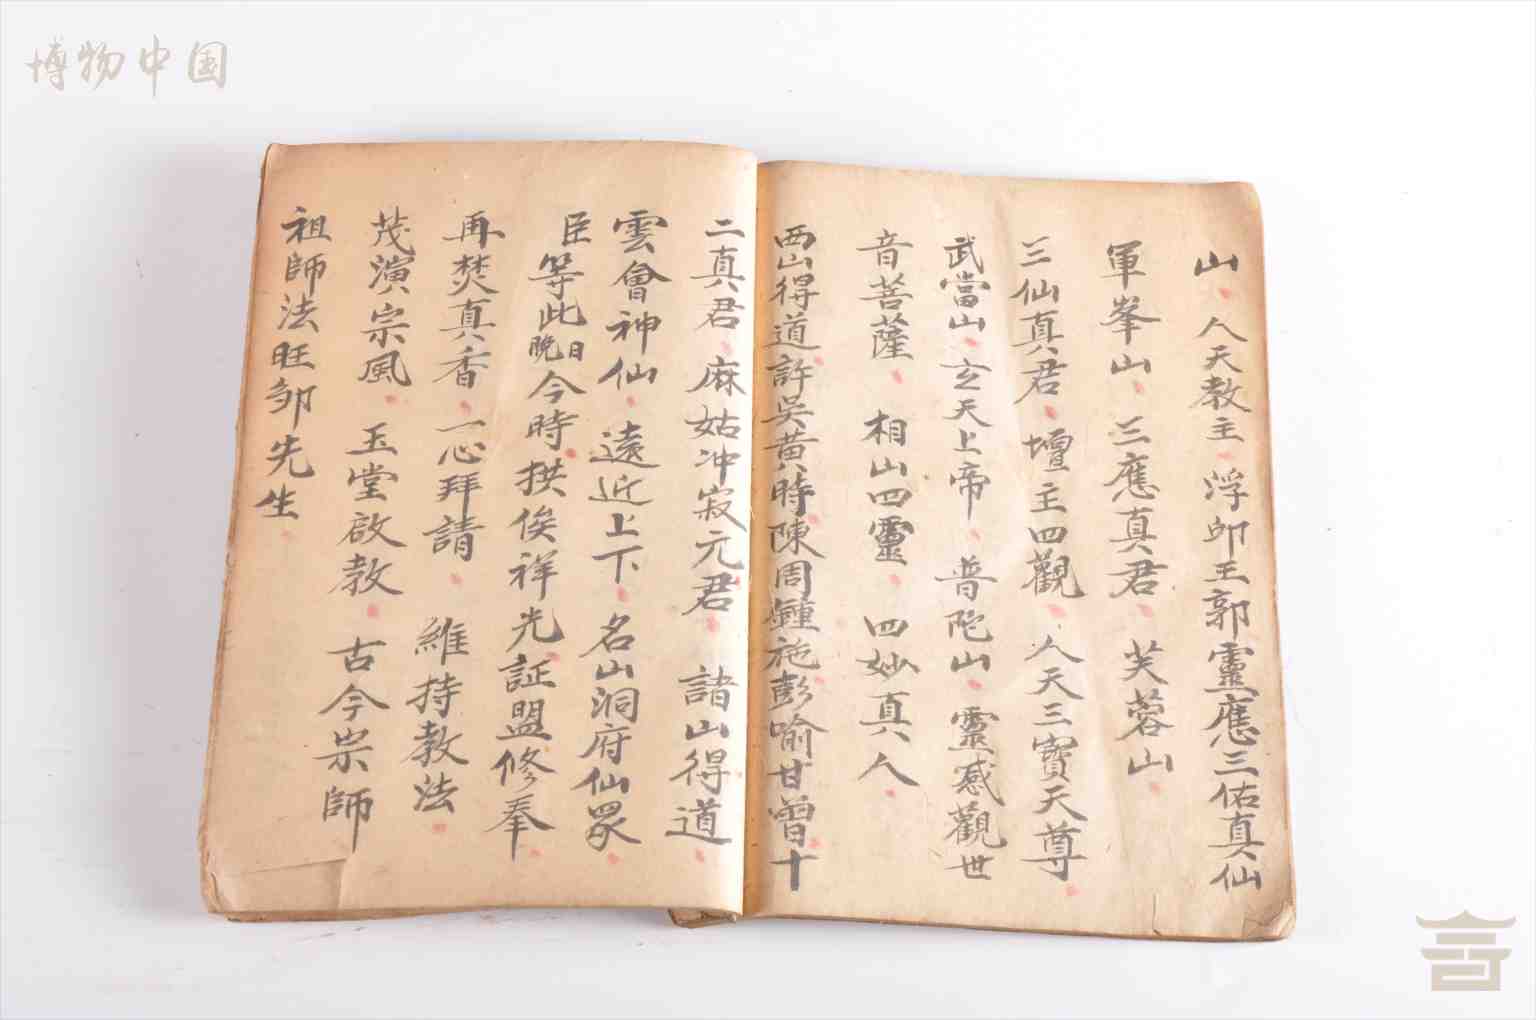 博物中国
山人天教主浮邱王郭靈應三佑真仙
軍峯山三應真君芙蓉山
三仙真君壇主四觀人天三寶天尊
武當山玄天上帝普陀山靈感觀世
音菩薩相山四靈四妙真人
西山得道許吳黃時陳周鍾施彭喻甘曾十
二真君麻姑冲寂元君諸山得道
雲會神仙遠近上下名山洞府仙眾
臣等此晚日今時拱俟祥光証盟修奉
再焚真香一心拜請維持教法
茂演宗風玉堂啟教古今宗師
祖師法旺邹先生